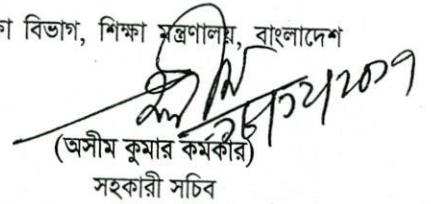 বিভাগ, শিক্ষা মন্ত্রণালয়, বাংলাদেশ
(অসীম কুমার কর্মকার)
সহকারী সচিব